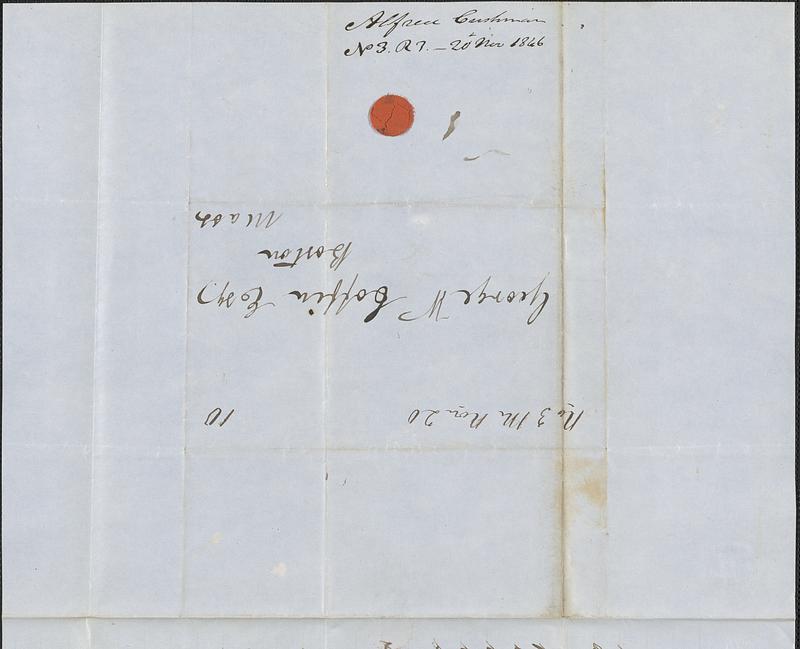 Alfred Cushman
No 3. R 7. – 20 Nov 1846
No 3 Me Nov 20
10
George W Coffin Esq
Boston
Mass